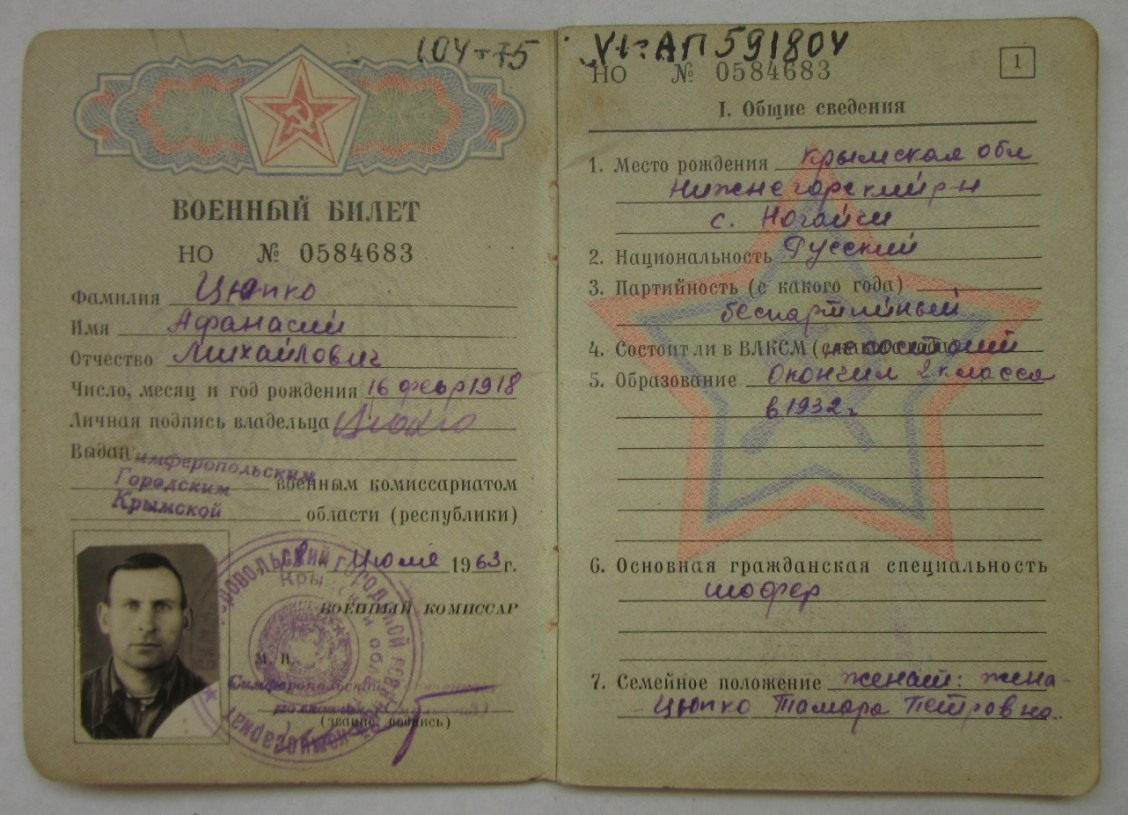 104-75
ВОЕННЫЙ БИЛЕТ
НО № 0584683
Фамилия Цюпко
Имя Афанасий
Отчество Михайлович
Число, месяц и год рождения 16 февр 1918
Личная подпись владельца Цюпко
Выдан Симферопольским
Городским военным комиссариатом
Крымской области (республики)
Июля 1963 г.
ВОЕННЫЙ КОМИССАР
М. П.
(звание, подпись)
VI-АП 591804
НО № 0584683
1
I. Общие сведения
1. Место рождения Крымская обл
Нижнегорский р-н
с. Ногайчи
2. Национальность Русский
3. Партийность (с какого года)
беспартийный
4. Состоит ли в ВЛКСМ (с какого года) не состоит
5. Образование Окончил 2 класса
в 1932 г
6. Основная гражданская специальность
шофер
7. Семейное положение женат: жена -
Цюпко Тамара Петровна.